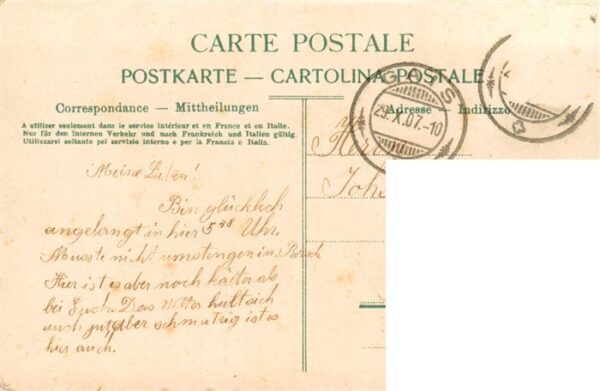 CARTE POSTALE
POSTKARTE — CARTOLINA POSTALE
Correspondance — Mittheilungen
Adresse — Indirizzo
A utiliser seulement dans le service intérieur et en France et en Italie.
Nur für den internen Verkehr und nach Frankreich und Italien gültig.
Utilizzarsi soltanto pel servizio interno e per la Francia e Italia.
GAMS
29.X.07.-10
Meine Lieben!
Bin glücklich
angelangt in hier 5 48 Uhr.
Musste nicht umsteigen in
Hier ist es aber noch kälter als
bei Euch. Das Wetter hält sich
auch gut, aber schmutzig ist es
hier auch.